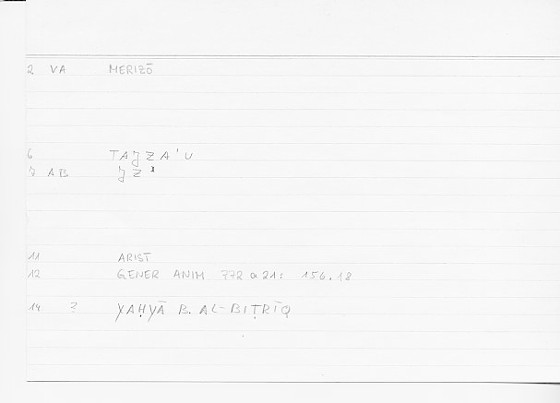 2 VA MERIZŌ
6 TAJZA'U
7 AB JZ'
11 ARIST
12 GENER ANIM 772 a 21: 156.18
14 ? YAḤYĀ B. AL-BIṬRĪQ